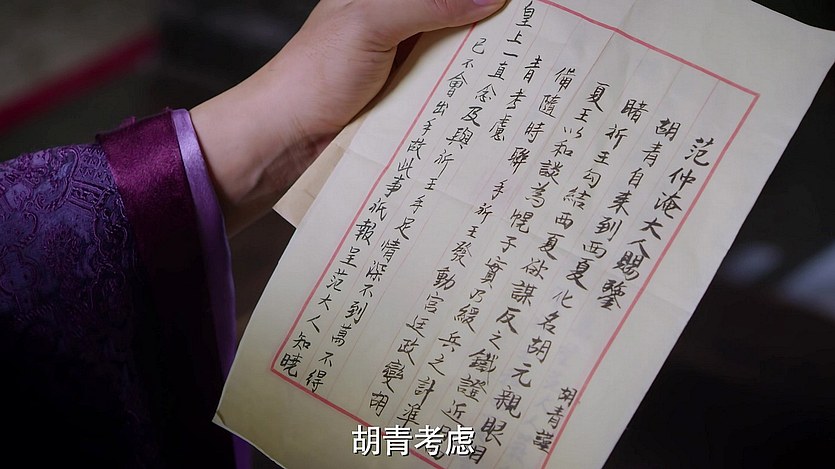 范仲淹大人賜鑒
胡青自來到西夏化名胡元親眼目
睹祈王勾結西夏欲謀反之鐵證近
夏王以和談為幌子實乃緩兵之計準
備隨時聯手祈王發動宮廷政變胡
青考慮
皇上一直念及與祈王手足情深不到萬不得
已不會出手故此事祇報呈范大人知曉
胡青
胡青考虑